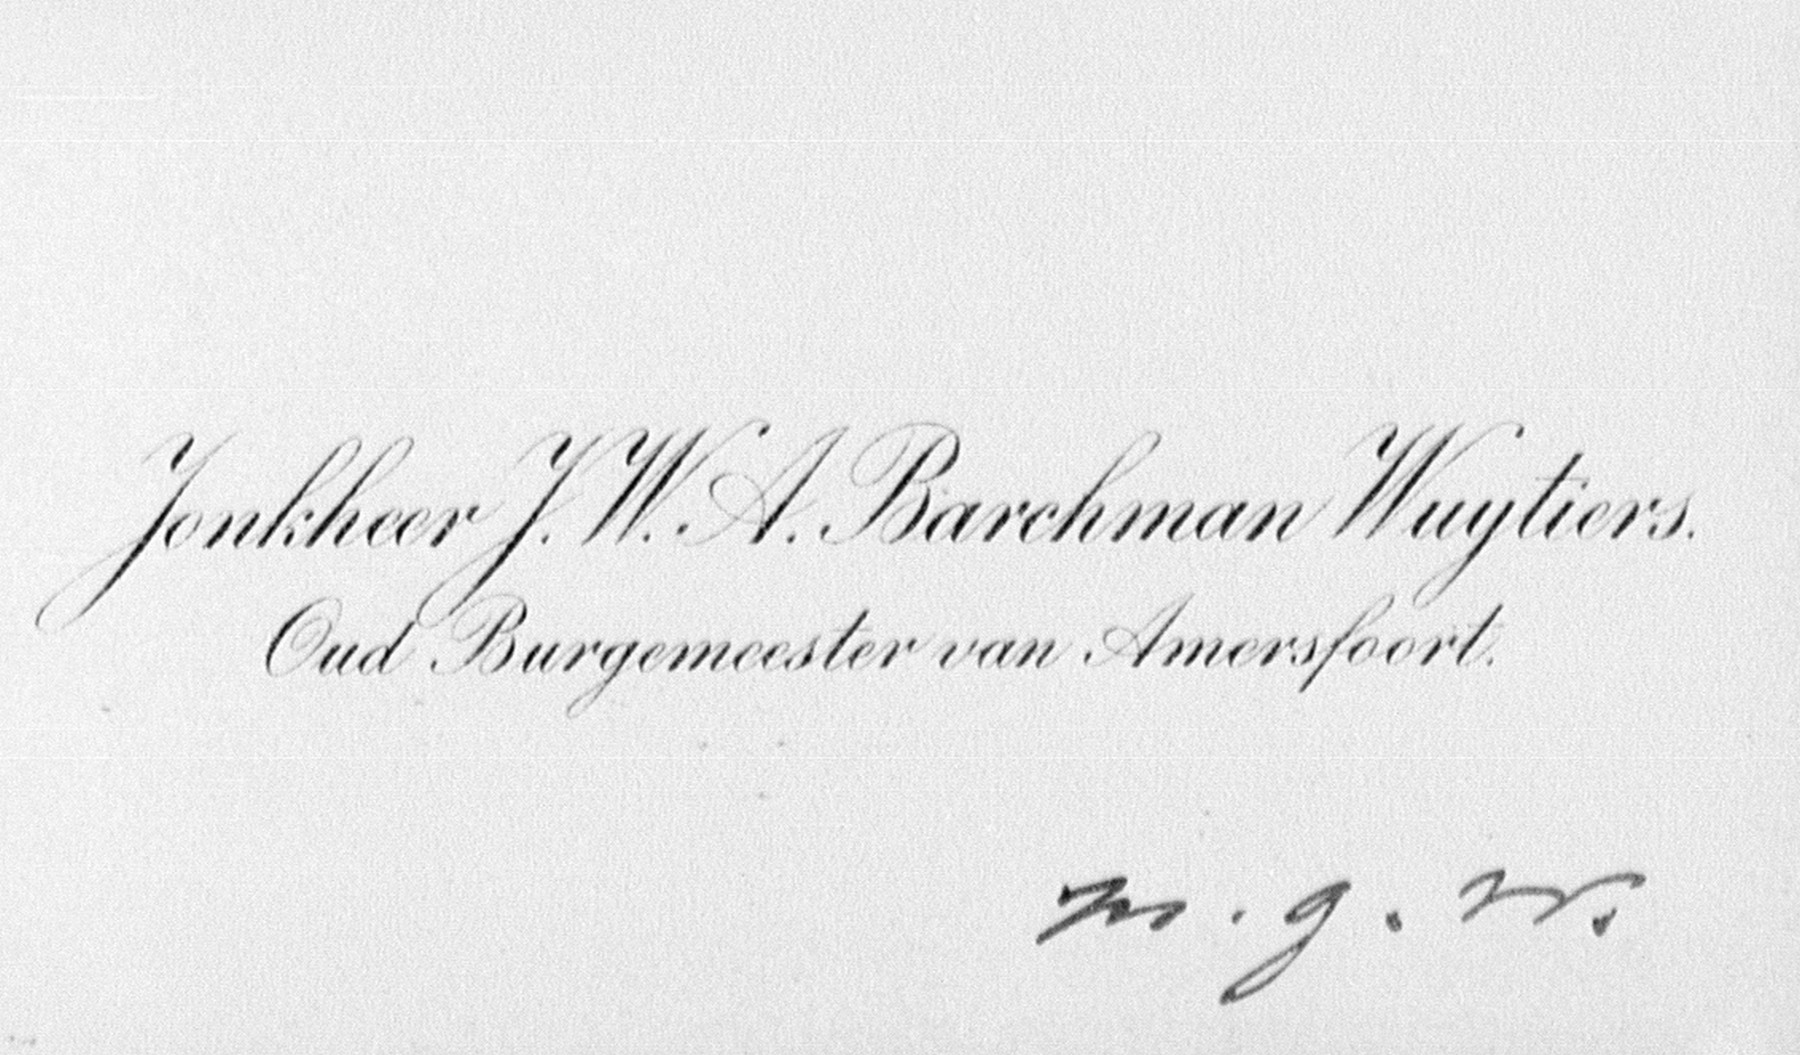 Jonkheer J. W. A. Barchman Wuytiers.
Oud Burgemeester van Amersfoort.
m. g. W.